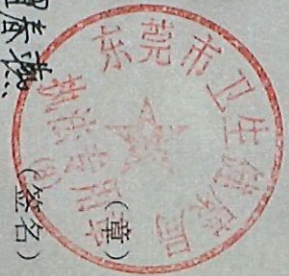 东莞市卫生健康局
执法专用章
(8)
(章)
(签名)